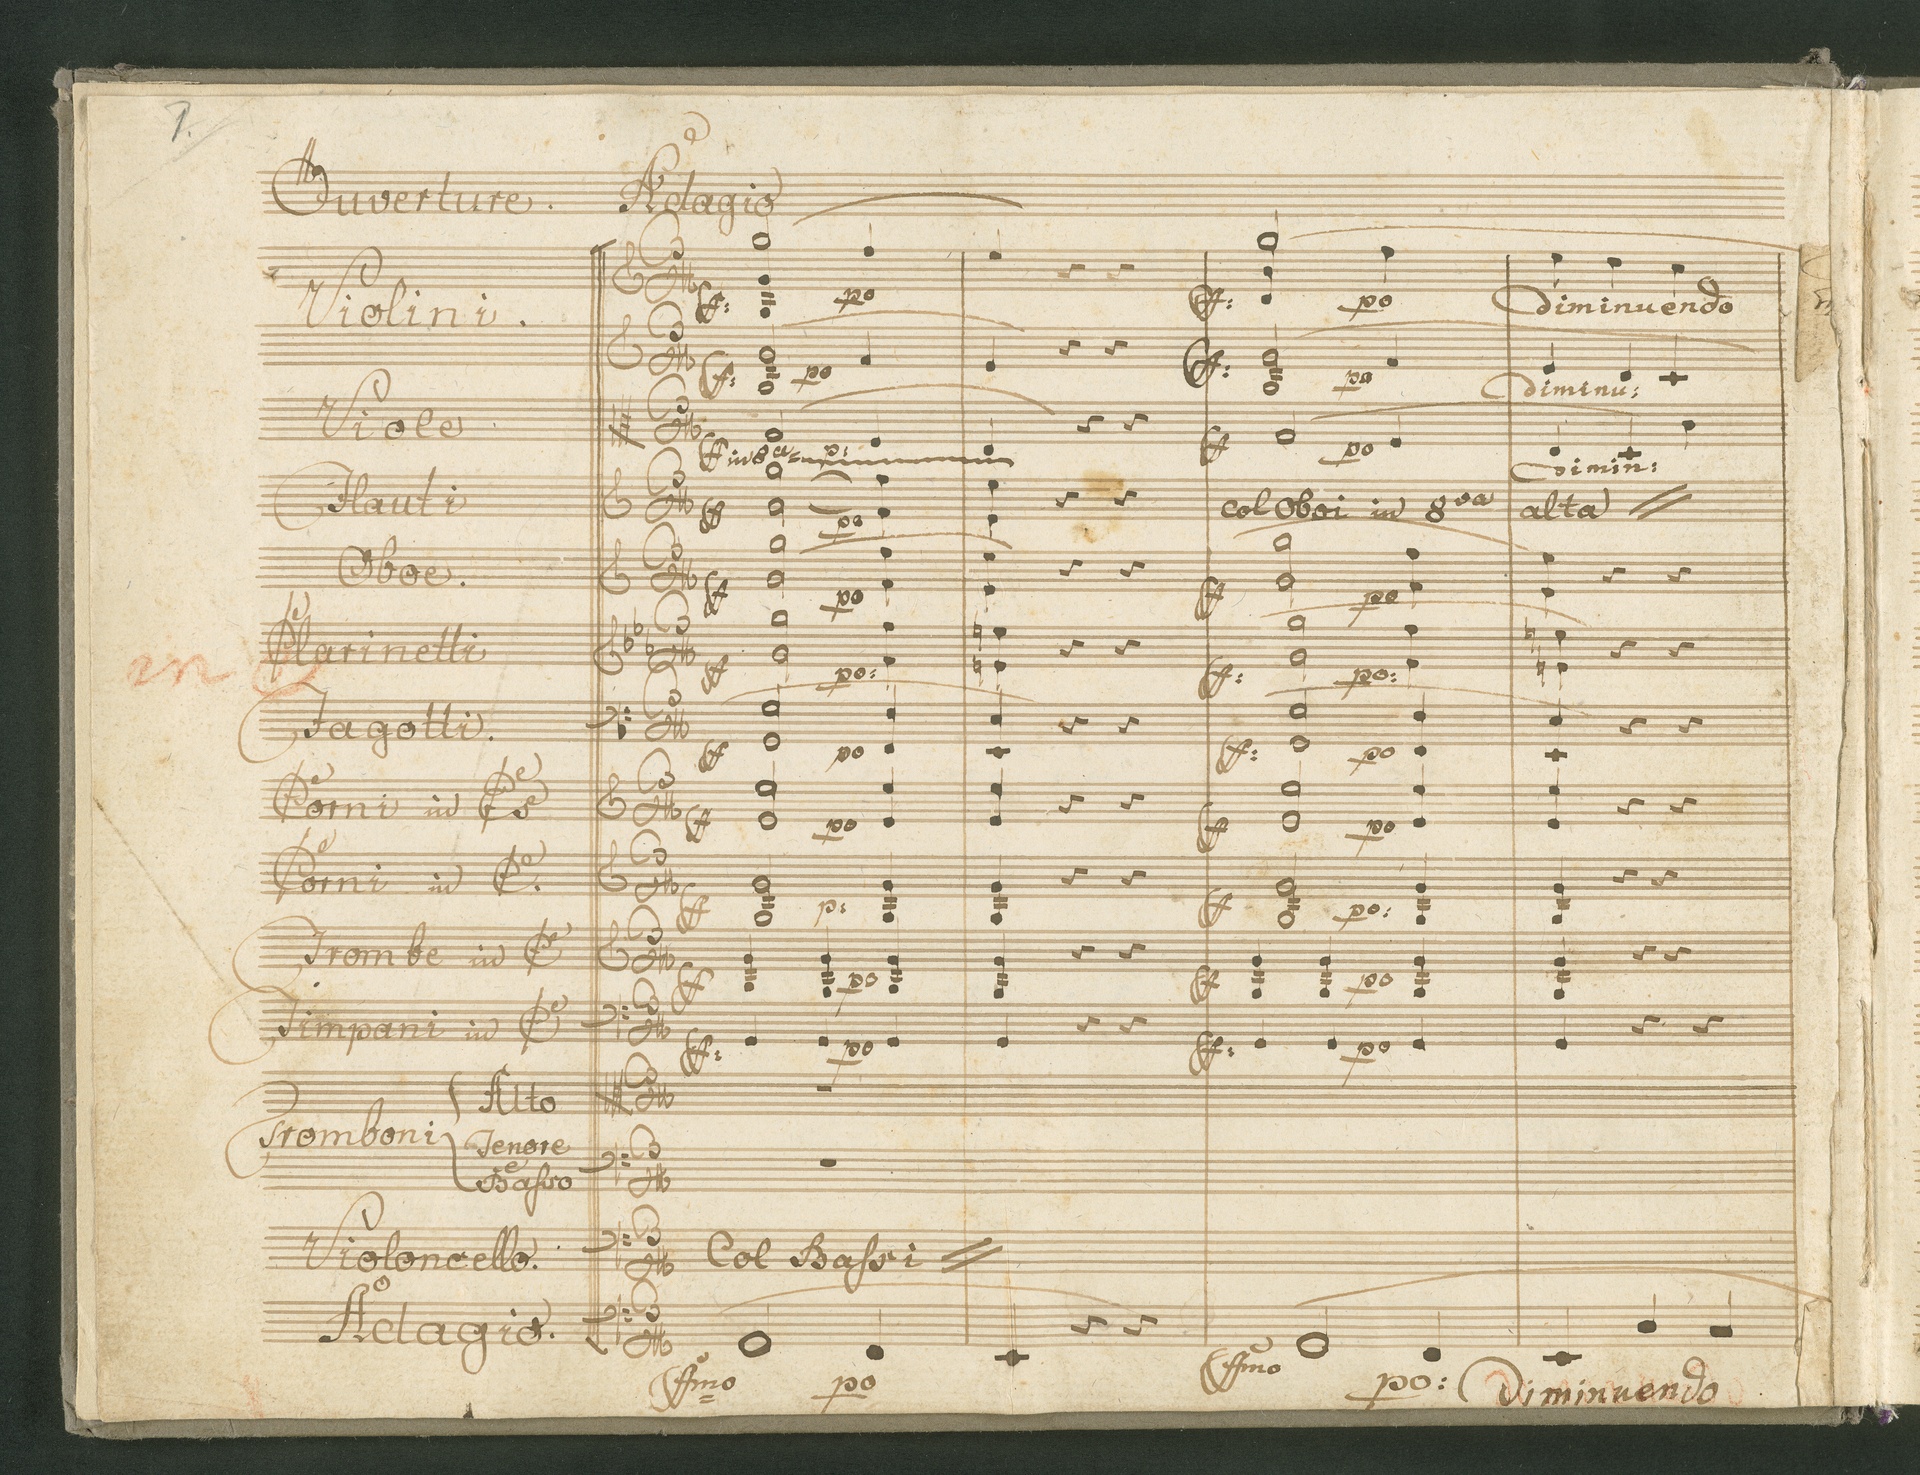 1.
Ouverture. Adagio
Violini.
ff: po ff: po Diminuendo
ff: po ff: po Diminu:
Viole
ff p: ff po Dimin:
in 8va
Flauti
ff po col Oboi in 8va alta
Oboe.
ff po ff po
Clarinetti
in C
ff po: ff: po:
Fagotti.
ff po ff: po
Corni in Es
ff po ff po
Corni in C.
ff p: ff po:
Trombe in C
ff po ff po
Timpani in C
ff: po ff: po
Tromboni
Alto
Tenore
e
Basso
Violoncello. Col Bassi
Adagio.
ffmo po ffmo po: Diminuendo